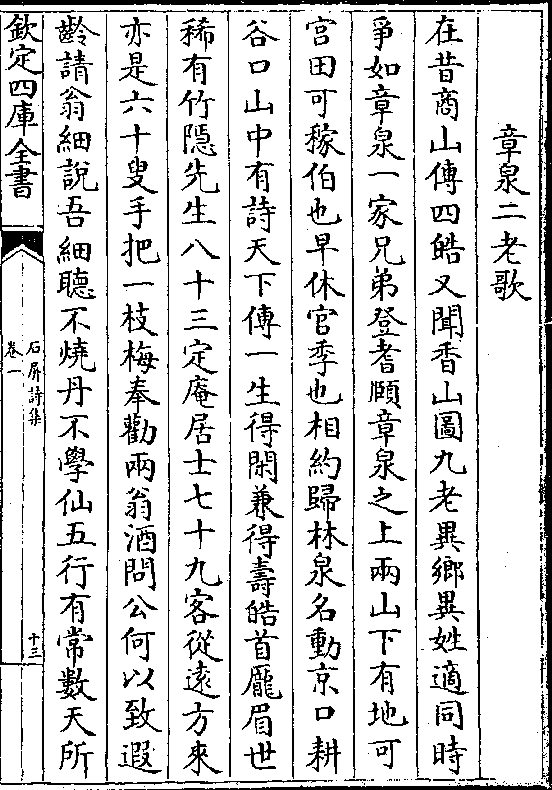 章泉二老歌
在昔商山傳四皓又聞香山圖九老異鄉異姓適同時
爭如章泉一家兄弟登耆頤章泉之上兩山下有地可
宫田可稼伯也早休官季也相約歸林泉名動京口耕
谷口山中有詩天下傳一生得閑兼得壽皓首龐眉世
稀有竹隠先生八十三定庵居士七十九客從逺方來
亦是六十叟手把一枝梅奉勸兩翁酒問公何以致遐
齡請翁細說吾細聽不燒丹不學仙五行有常數天所
欽定四庫全書
石屏詩集
卷一
十三